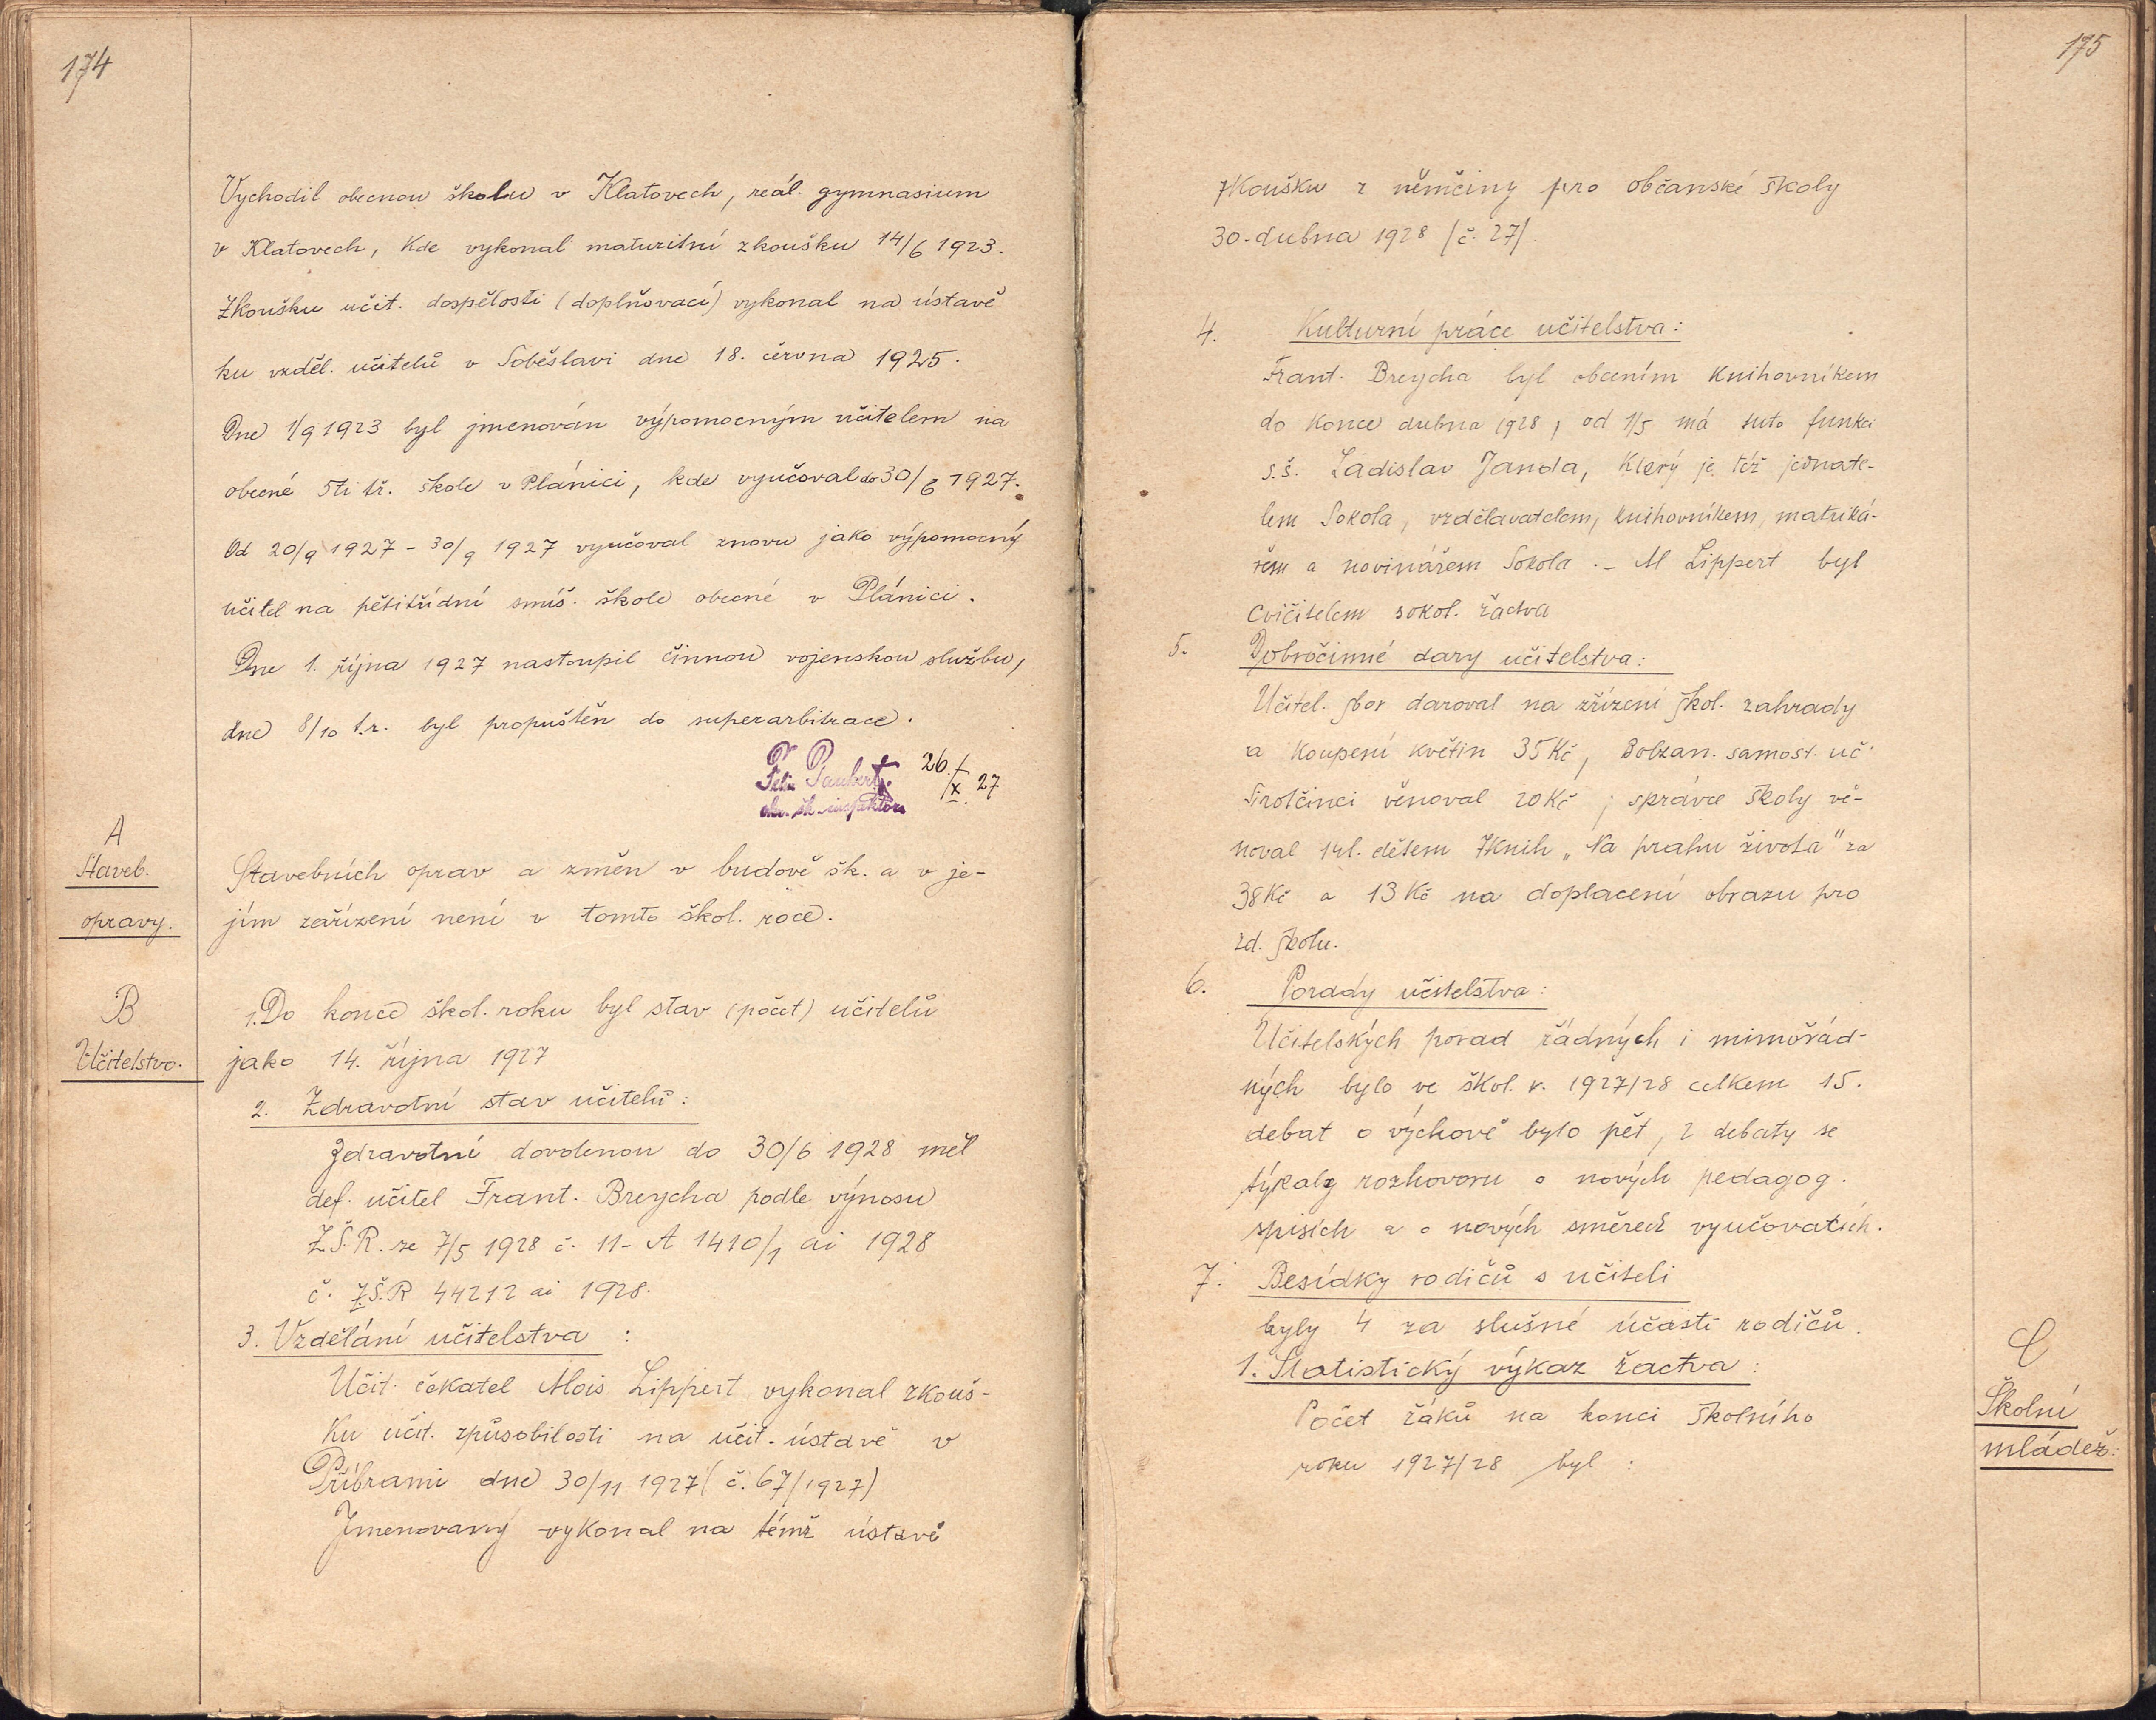 174
Vychodil obecnou školu v Klatovech, reál. gymnasium
v Klatovech, kde vykonal maturitní zkoušku 14/6 1923.
Zkoušku učit. dospělosti (doplňovací) vykonal na ústavě
ku vzděl. učitelů v Soběslavi dne 18. června 1925.
Dne 1/9 1923 byl jmenován výpomocným učitelem na
obecné 5ti tř. škole v Plánici, kde vyučoval do 30/6 1927.
Od 20/9 1927 - 30/9 1927 vyučoval znovu jako výpomocný
učitel na pětitřídní smíš. škole obecné v Plánici.
Dne 1. října 1927 nastoupil činnou vojenskou službu,
dne 8/10 t.r. byl propuštěn do superarbitrace.
26./X. 27
okr. šk. inspektor
A
Staveb.
opravy.
Stavebních oprav a změn v budově šk. a v je-
jím zařízení není v tomto škol. roce.
B
Učitelstvo.
1. Do konce škol. roku byl stav (počet) učitelů
jako 14. října 1927
2. Zdravotní stav učitelů:
Zdravotní dovolenou do 30/6 1928 měl
def. učitel Frant. Breycha podle výnosu
Z.Š.R. ze 7/5 1928 č. 11-A 1410/1 ai 1928
č. Z.Š.R 44212 ai 1928.
3. Vzdělání učitelstva:
Učit. čekatel Alois Lippert vykonal zkouš-
ku učit. způsobilosti na učit. ústavě v
Příbrami dne 30/11 1927 (č. 67/1927)
Jmenovaný vykonal na témž ústavě
175
zkoušku z němčiny pro občanské školy
30. dubna 1928 /č. 27/.
4. Kulturní práce učitelstva:
Frant. Breycha byl obecním knihovníkem
do konce dubna 1928, od 1/5 má tuto funkci
s.š. Ladislav Janda, který je též jednate-
lem Sokola, vzdělavatelem, knihovníkem, matriká-
řem a novinářem Sokola. - Al Lippert byl
cvičitelem sokol. žactva
5. Dobročinné dary učitelstva:
Učitel. sbor daroval na zřízení škol. zahrady
a koupení květin 35 Kč, Bolzan. samost. uč.
Sirotčinci věnoval 20 Kč; správce školy vě-
noval dětem 7 knih „Na prahu života" za
38 Kč a 13 Kč na doplacení obrazu pro
zd. školu.
6. Porady učitelstva:
Učitelských porad řádných i mimořád-
ných bylo ve škol. r. 1927/28 celkem 15.
debat o výchově bylo pět, 2 debaty se
týkaly rozhovoru o nových pedagog.
spisích a o nových směrech vyučovacích.
7. Besídky rodičů s učiteli
byly 4 za slušné účasti rodičů.
C
Školní
mládež:
1. Statistický výkaz žactva:
Počet žáků na konci školního
roku 1927/28 byl: